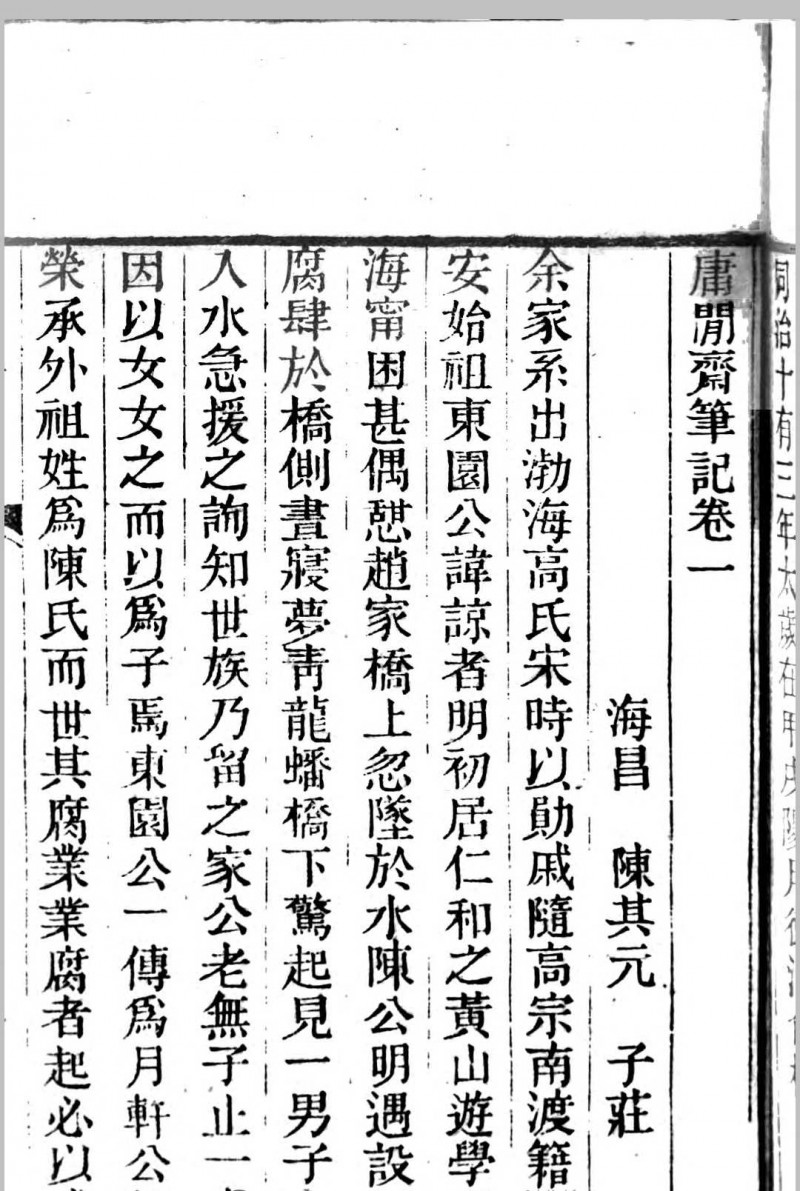 同治十有三年太歲在甲戌陽月
庸閒齋筆記卷一
海昌 陳其元 子莊
余家系出渤海高氏宋時以勛戚隨高宗南渡籍
安始祖東園公諱諒者明初居仁和之黃山遊學
海甯困甚偶憩趙家橋上忽墜於水陳公明遇設
腐肆於橋側晝寢夢靑龍蟠橋下驚起見一男子
入水急援之詢知世族乃留之家公老無子止一
因以女女之而以爲子焉東園公一傳爲月軒公
榮承外祖姓爲陳氏而世其腐業業腐者起必以